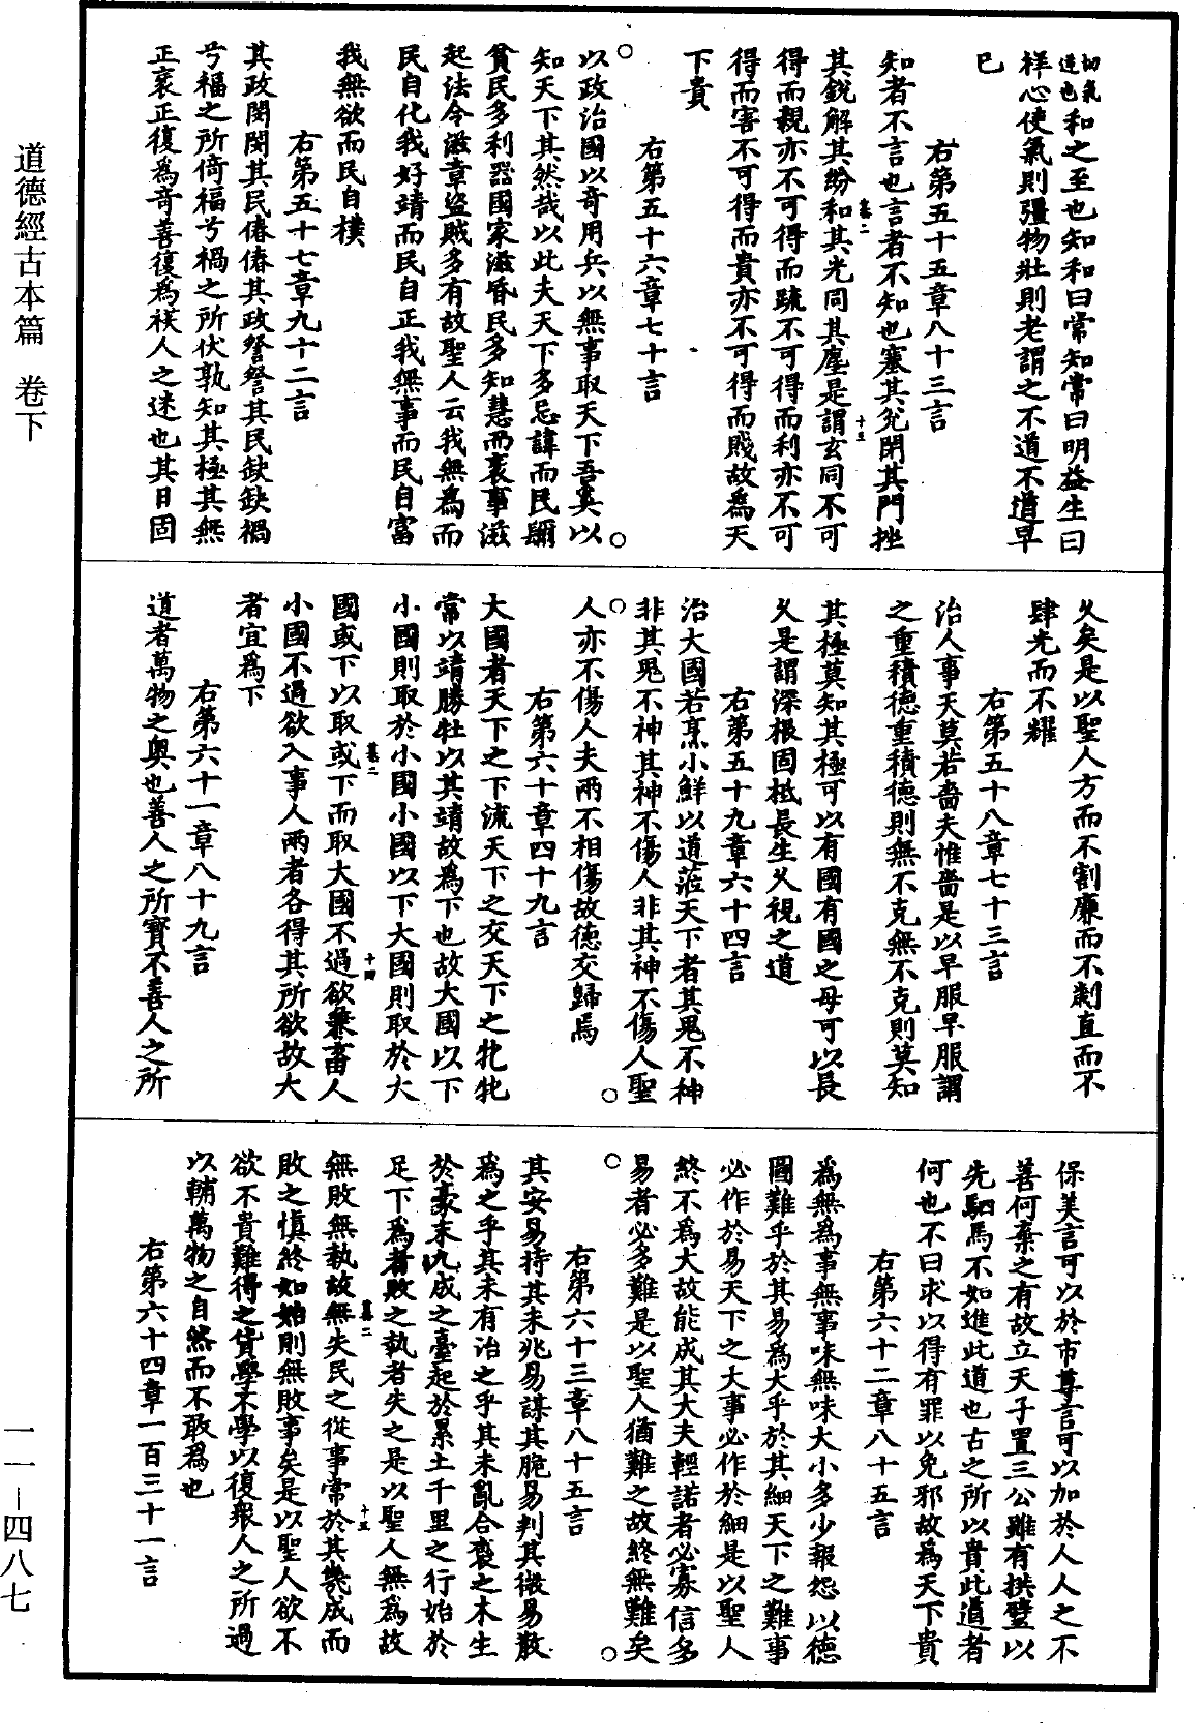 道德經古本篇　卷下
切氣
進也和之至也知和曰常知常曰明益生曰
祥心使氣則彊物壯則老謂之不道不道早
已
右第五十五章八十三言
知者不言也言者不知也塞其兌閉其門挫
其銳解其紛和其光同其塵是謂玄同不可
得而親亦不可得而疏不可得而利亦不可
得而害不可得而貴亦不可得而賤故爲天
下貴
右第五十六章七十言
以政治國以奇用兵以無事取天下吾奚以
知天下其然哉以此夫天下多忌諱而民彌
貧民多利器國家滋昏民多知慧而衺事滋
起法令滋章盜賊多有故聖人云我無爲而
民自化我好靖而民自正我無事而民自富
我無欲而民自樸
右第五十七章九十二言
其政閔閔其民偆偆其政詧詧其民缺缺禍
兮福之所倚福兮禍之所伏孰知其極其無
正衺正復爲奇善復爲祅人之迷也其日固
久矣是以聖人方而不割廉而不劌直而不
肆光而不耀
右第五十八章七十三言
治人事天莫若嗇夫惟嗇是以早服早服謂
之重積德重積德則無不克無不克則莫知
其極莫知其極可以有國有國之母可以長
久是謂深根固柢長生久視之道
右第五十九章六十四言
治大國若烹小鮮以道莅天下者其鬼不神
非其鬼不神其神不傷人非其神不傷人聖
人亦不傷人夫兩不相傷故德交歸焉
右第六十章四十九言
大國者天下之下流天下之交天下之牝牝
常以靖勝牡以其靖故爲下也故大國以下
小國則取於小國小國以下大國則取於大
國或下以取或下而取大國不過欲兼畜人
小國不過欲入事人兩者各得其所欲故大
者宜爲下
右第六十一章八十九言
道者萬物之奧也善人之所寶不善人之所
保美言可以於市尊言可以加於人人之不
善何棄之有故立天子置三公雖有拱璧以
先駟馬不如進此道也古之所以貴此道者
何也不曰求以得有罪以免邪故爲天下貴
右第六十二章八十五言
爲無爲事無事味無味大小多少報怨以德
圖難乎於其易爲大乎於其細天下之難事
必作於易天下之大事必作於細是以聖人
終不爲大故能成其大夫輕諾者必寡信多
易者必多難是以聖人猶難之故終無難矣
右第六十三章八十五言
其安易持其未兆易謀其脆易判其微易散
爲之乎其未有治之乎其未亂合裒之木生
於豪末九成之臺起於累土千里之行始於
足下爲者敗之執者失之是以聖人無爲故
無敗無執故無失民之從事常於其幾成而
敗之愼終如始則無敗事矣是以聖人欲不
欲不貴難得之貨學不學以復衆人之所過
以輔萬物之自然而不敢爲也
右第六十四章一百三十一言
一一―四八七